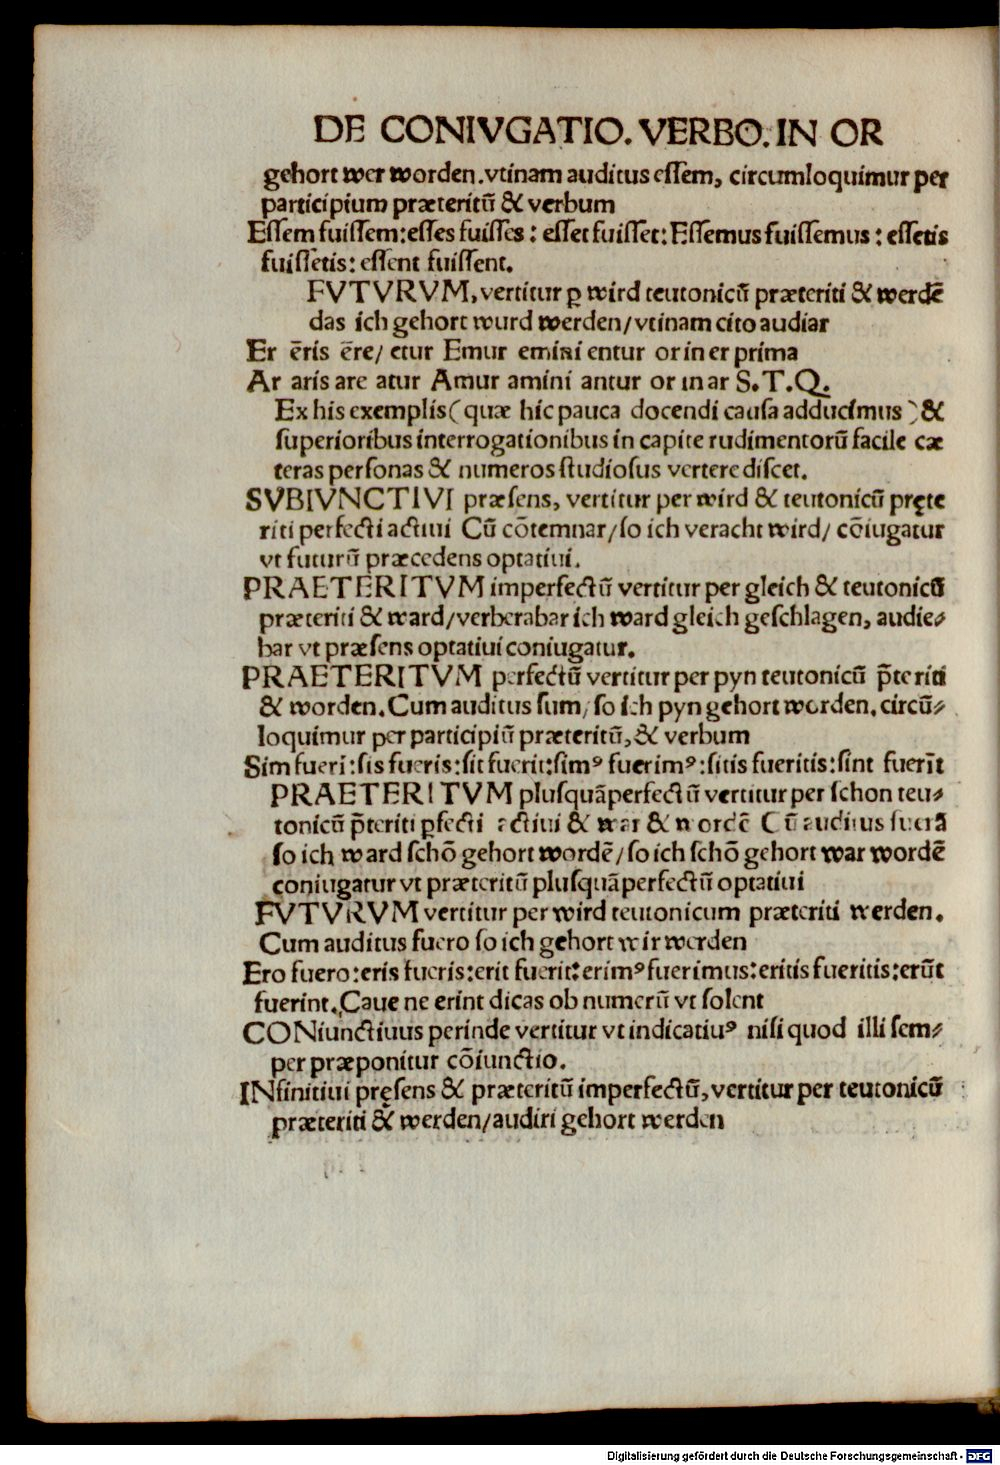 DE CONIVGATIO. VERBO. IN OR
gehort wer worden. vtinam auditus eſſem, circumloquimur per
participium præteritū & verbum
Eſſem fuiſſem: eſſes fuiſſes: eſſet fuiſſet: Eſſemus fuiſſemus: eſſetis
fuiſſetis: eſſent fuiſſent.
FVTVRVM, vertitur ꝑ wird teutonicū præteriti & werdē
das ich gehort wurd werden/ vtinam cito audiar
Er ēris ēre/ etur Emur emini entur or in er prima
Ar aris are atur Amur amini antur or in ar S. T. Q.
Ex his exemplis (quæ hic pauca docendi cauſa adducimus) &
ſuperioribus interrogationibus in capite rudimentorū facile cæ
teras perſonas & numeros ſtudioſus vertere diſcet.
SVBIVNCTIVI præſens, vertitur per wird & teutonicū pręte
riti perfecti actiui Cū cōtemnar/ ſo ich veracht wird/ cōiugatur
vt futurū præcedens optatiui.
PRAETERITVM imperfectū vertitur per gleich & teutonicū
præteriti & ward/ verberabar ich ward gleich geſchlagen, audie⸗
bar vt præſens optatiui coniugatur.
PRAETERITVM perfectū vertitur per pyn teutonicū p̄teriti
& worden. Cum auditus ſum/ ſo ich pyn gehort worden. circū⸗
loquimur per participiū præteritū, & verbum
Sim fueri: ſis fueris: ſit fuerit: ſimꝰ fuerimꝰ: ſitis fueritis: ſint fuerīt
PRAETERITVM pluſquāperfectū vertitur per ſchon teu⸗
tonicū p̄teriti ꝑfecti actiui & war & wordē Cū auditus fuerā
ſo ich ward ſchō gehort wordē/ ſo ich ſchō gehort war wordē
coniugatur vt præteritū pluſquāperfectū optatiui
FVTVRVM vertitur per wird teutonicum præteriti werden.
Cum auditus fuero ſo ich gehort wir werden
Ero fuero: eris fueris: erit fuerit: erimꝰ fuerimus: eritis fueritis: erūt
fuerint. Caue ne erint dicas ob numerū vt ſolent
CONiunctiuus perinde vertitur vt indicatiuꝰ niſi quod illi ſem⸗
per præponitur cōiunctio.
INfinitiui pręſens & præteritū imperfectū, vertitur per teutonicū
præteriti & werden/ audiri gehort werden
Digitalisierung gefördert durch die Deutsche Forschungsgemeinschaft - DFG